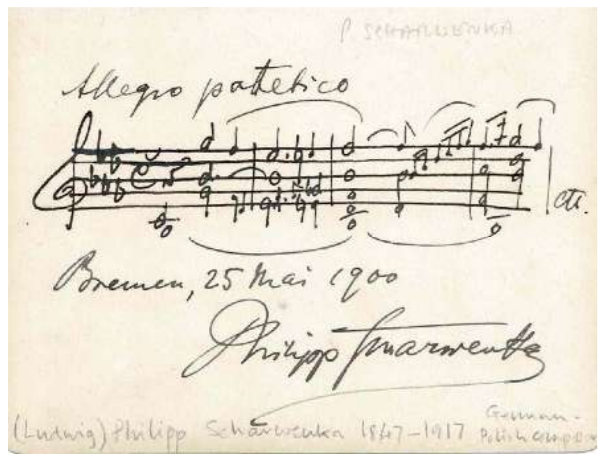 P. SCHARWENKA
Allegro patetico
etc.
Bremen, 25 Mai 1900
Philipp Scharwenka
(Ludwig) Philipp Scharwenka 1847-1917 German-
Polish composer